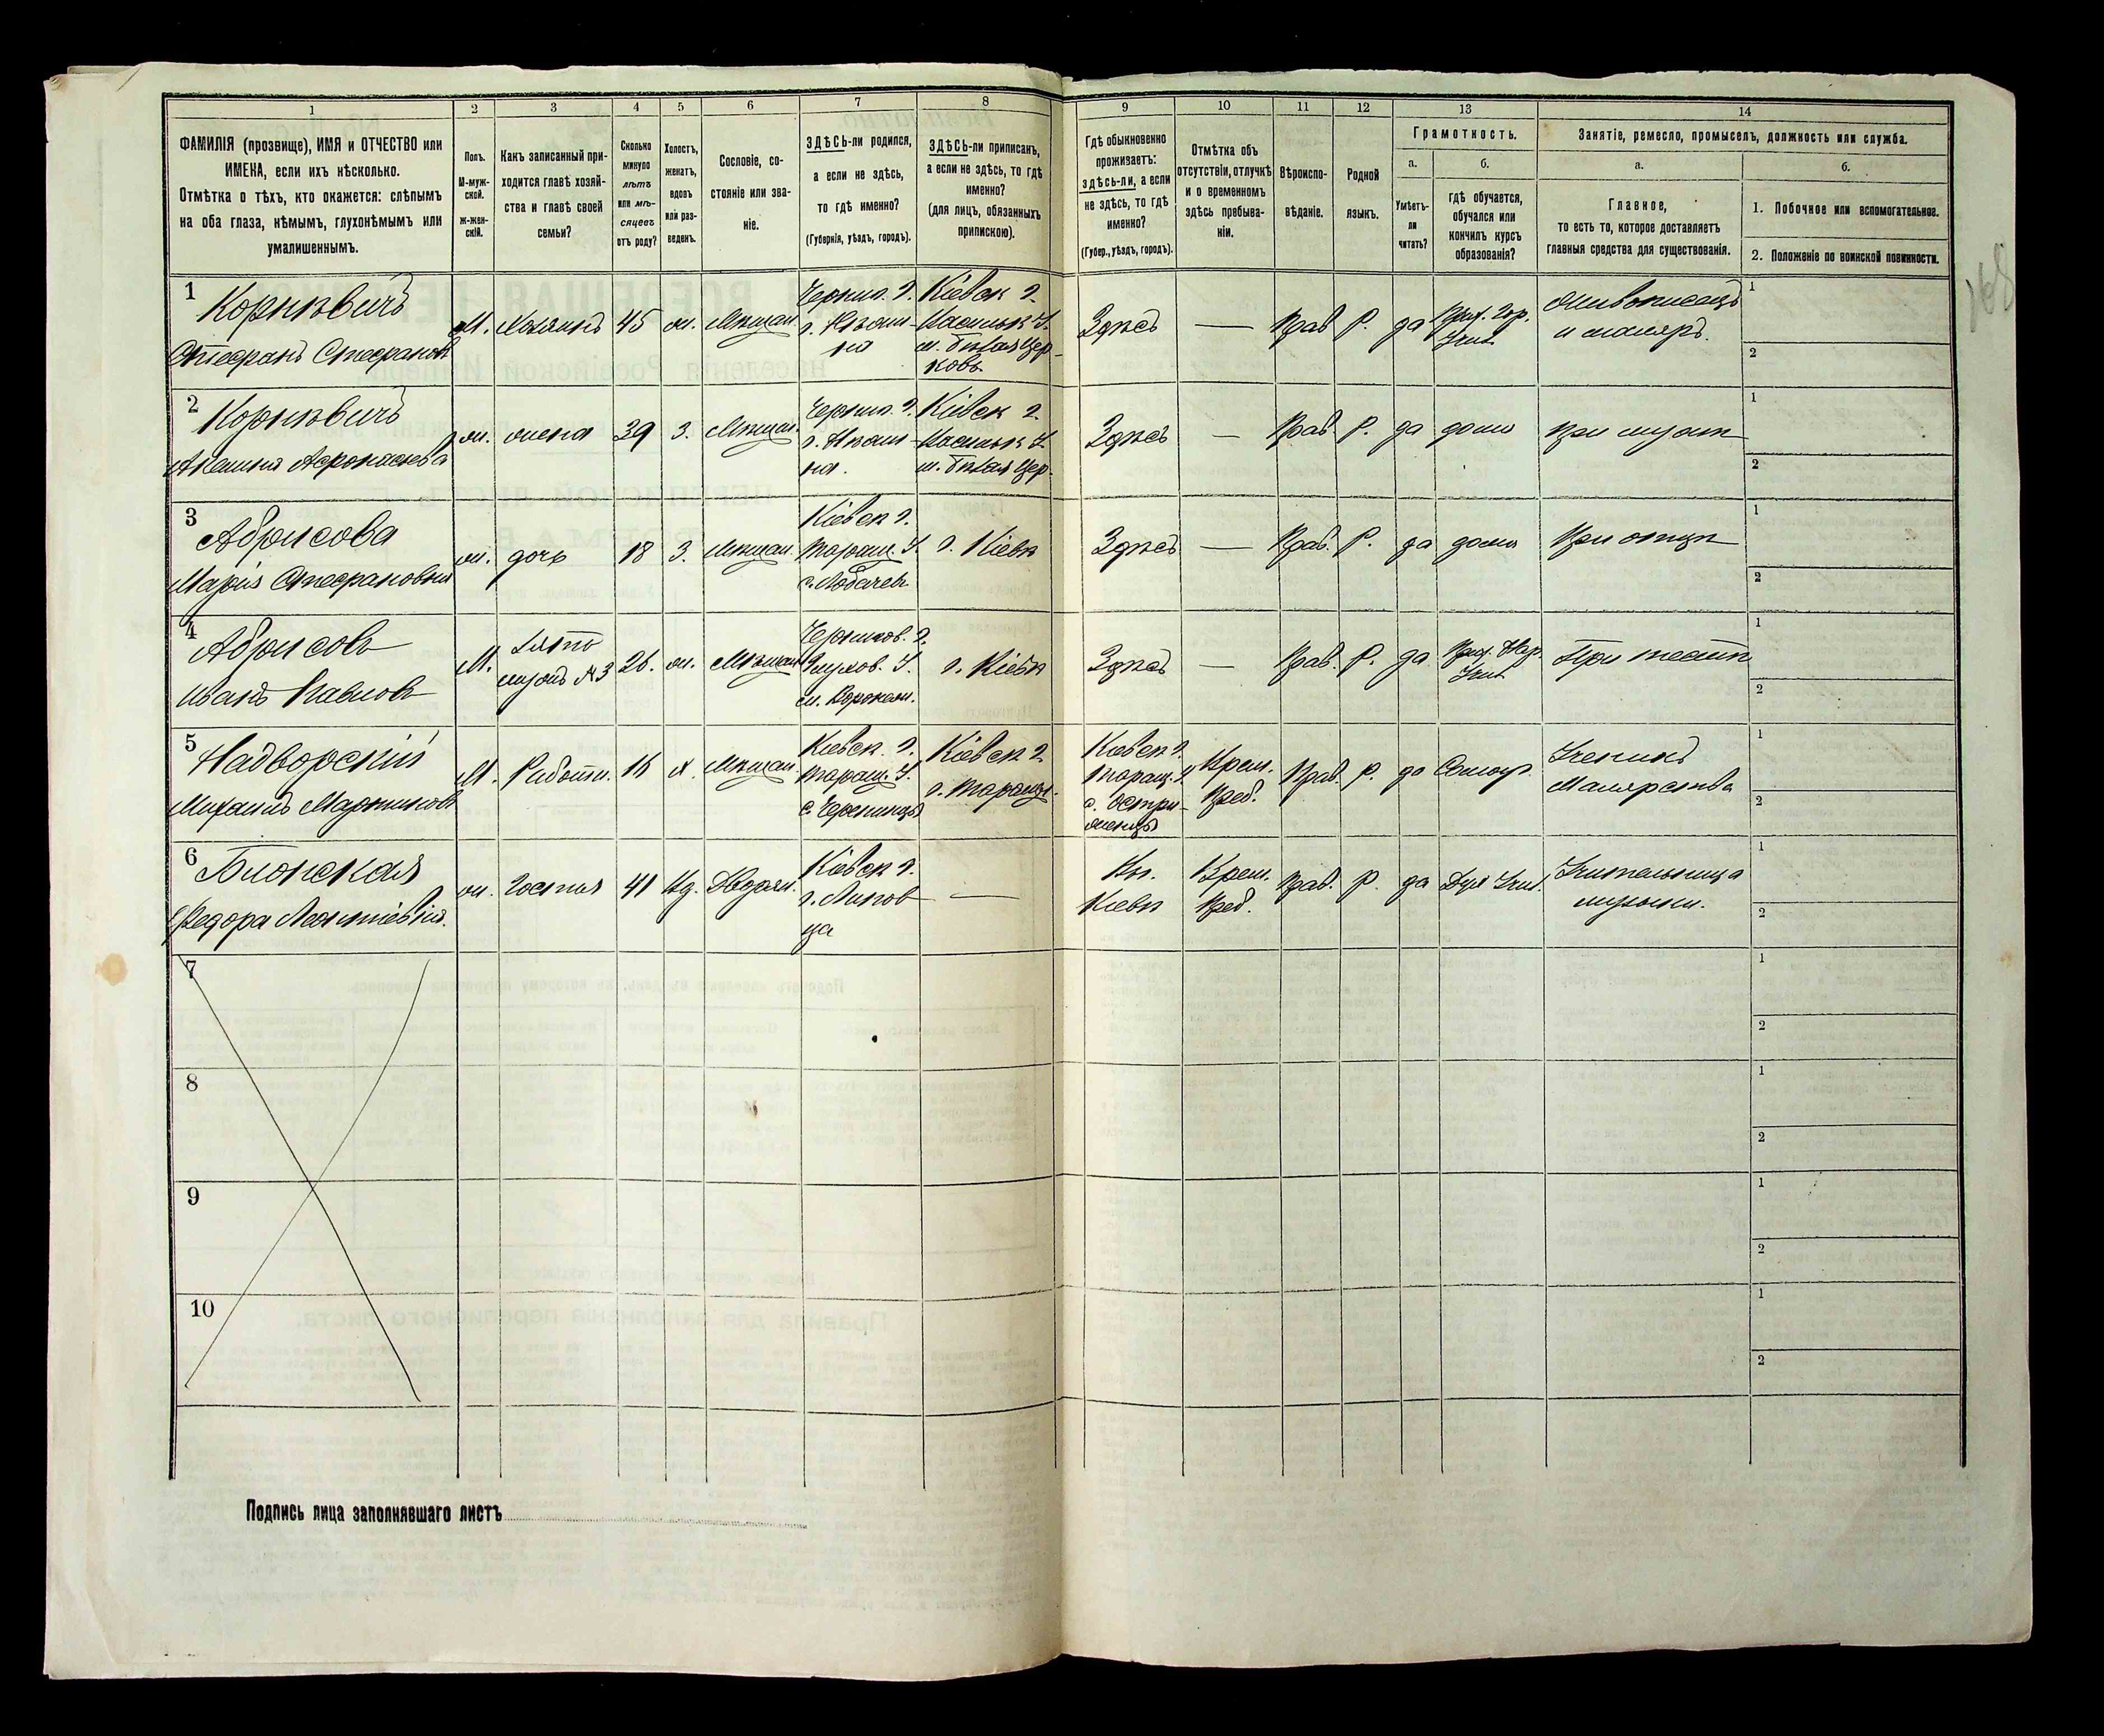 1 2 3 4 5 6 7 8 9 10 11 12 13 14
ФАМИЛІЯ (прозвище), ИМЯ и ОТЧЕСТВО или
ИМЕНА, если ихъ нѣсколько.
Отмѣтка о тѣхъ, кто окажется: слѣпымъ
на оба глаза, нѣмымъ, глухонѣмымъ или
умалишеннымъ.
Полъ.
М-муж-
ской.
Ж-жен-
скій.
Какъ записанный при-
ходится главѣ хозяй-
ства и главѣ своей
семьи?
Сколько
минуло
лѣтъ
или мѣ-
сяцевъ
отъ роду?
Холостъ,
женатъ,
вдовъ
или раз-
веденъ.
Сословіе, со-
стояніе или зва-
ніе.
ЗДѢСЬ-ли родился,
а если не здѣсь,
то гдѣ именно?
(Губернія, уѣздъ, городъ).
ЗДѢСЬ-ли приписанъ,
а если не здѣсь, то гдѣ
именно?
(для лицъ, обязанныхъ
припискою).
Гдѣ обыкновенно
проживаетъ:
здѣсь-ли, а если
не здѣсь, то гдѣ
именно?
(Губер., уѣздъ, городъ).
Отмѣтка объ
отсутствіи, отлучкѣ
и о временномъ
здѣсь пребыва-
ніи.
Вѣроиспо-
вѣданіе.
Родной
языкъ.
Грамотность.
а.
Умѣетъ-
ли
читать?
б.
гдѣ обучается,
обучался или
кончилъ курсъ
образованія?
Занятіе, ремесло, промыселъ, должность или служба.
а.
Главное,
то есть то, которое доставляетъ
главныя средства для существованія.
б.
1. Побочное или вспомогательное.
2. Положеніе по воинской повинности.
1
Корнѣвичъ
Стефанъ Стефановъ
М.
Хозяинъ
45
ж.
Мѣщан.
Черниг. г.
г. Нѣжи-
на
Кіевск г.
Васильк У.
м. Бѣлая Цер-
ковь
Здѣсь
—
Прав
Р.
да
Прих. Гор.
Учил.
Живописецъ
и маляръ.
1
2
2
Корнѣвичъ
Акелина Афонасьева
ж.
жена
39
З.
Мѣщан.
Черниг. г.
г. Нѣжи-
на.
Кіевск г.
Васильк У.
м. Бѣлая Цер.
Здѣсь
—
Прав.
Р.
да
дома
при мужѣ
1
2
3
Абрисова
Марія Стефановна
ж.
дочь
18
З.
Мѣщан.
Кіевск г.
Таращ. У.
с. Лобачев
г. Кіевъ
Здѣсь
—
Прав.
Р.
да
дома
При отцѣ
1
2
4
Абрисовъ
Иванъ Павловъ
М.
Зять
мужъ №3
26.
ж.
Мѣщан
Чернигов. г.
Глухов. У.
м. Воронеж.
г. Кіевъ
Здѣсь
—
Прав.
Р.
да
Прих. Нар.
Учил.
При тестѣ
1
2
5
Надворскій
Михаилъ Мартиновъ
М.
Работн.
16
х.
Мѣщан.
Кіевск. г.
Таращ. У.
с.
Кіевск г.
г. Таращ.
Кіевск г.
Таращ. У.
с.
Врем.
Преб.
Прав.
Р.
да
Самоуч.
Ученикъ
Малярства
1
2
6
Блонская
Федора Леонтіевна.
ж.
Гостья
41
Дворян.
Кіевск г.
г. Липов
ца
—
Кіевъ
Врем.
Преб.
Прав.
Р.
да
Дух Учил.
Учительница
музыки.
1
2
7
1
2
8
1
2
9
1
2
10
1
2
Подпись лица заполнявшаго листъ